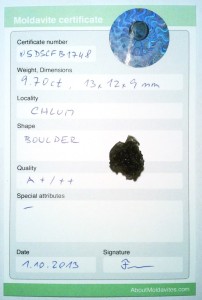 Moldavite certificate
Certificate number
Weight, Dimensions
9.70ct, 13x12x9mm
Locality
CHLUM
Shape
BOULDER
Quality
A+/++
Special attributes
–
Date
Signature
1.10.2013
AboutMoldavites.com